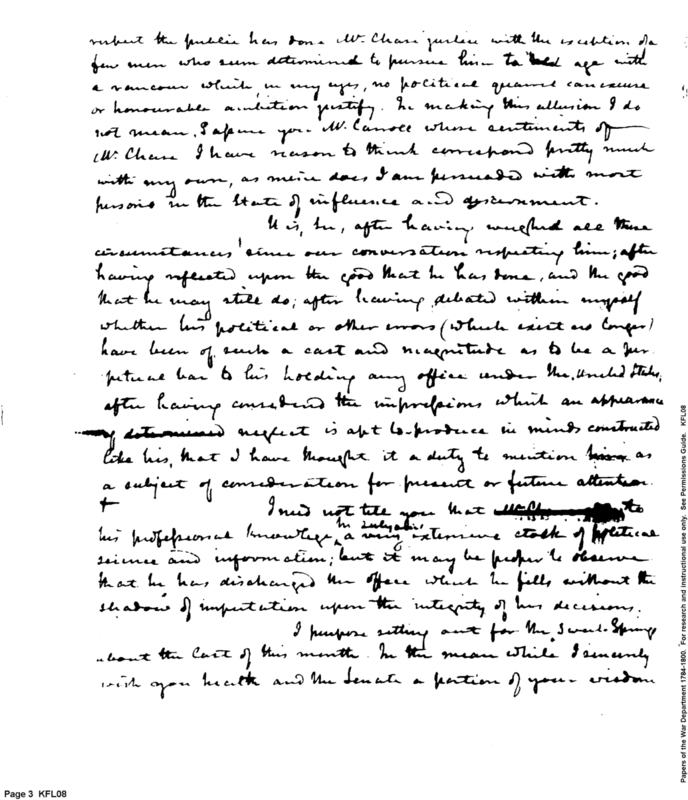 respect the public has done Mr. Chase justice with the exception of a
few men who seem determined to pursue him to old age with
a rancour which, in my eyes, no political quarrel can excuse
or honourable ambition justify. In making this allusion I do
not mean, I assure you Mr. Carroll whose sentiments of
Mr. Chase I have reason to think correspond pretty much
with my own, as mine does I am persuaded with most
persons in the State of influence and discernment.
It is, Sir, after having weighed all these
circumstances since our conversation respecting him; after
having reflected upon the good that he has done, and the good
that he may still do; after having debated within myself
whether his political or other errors (which exist no longer)
have been of such a cast and magnitude as to be a per
petual bar to his holding any office under the United States;
after having considered the impressions which an appearance
of determined neglect is apt to produce in minds constructed
like his, that I have thought it a duty to mention him as
a subject of consideration for present or future attention.
+
I need not tell you that Mr. Chase to
his professional knowledge, he subjoins a very extensive stock of political
science and information; but it may be proper to observe
that he has discharged the office which he fills without the
shadow of imputation upon the integrity of his decisions.
I purpose setting out for the Sweet Springs
about the last of this month. In the mean while I sincerely
wish you health and the Senate a portion of your wisdom
Page 3 KFL08
Papers of the War Department 1784-1800. For research and instructional use only. See Permissions Guide. KFL08